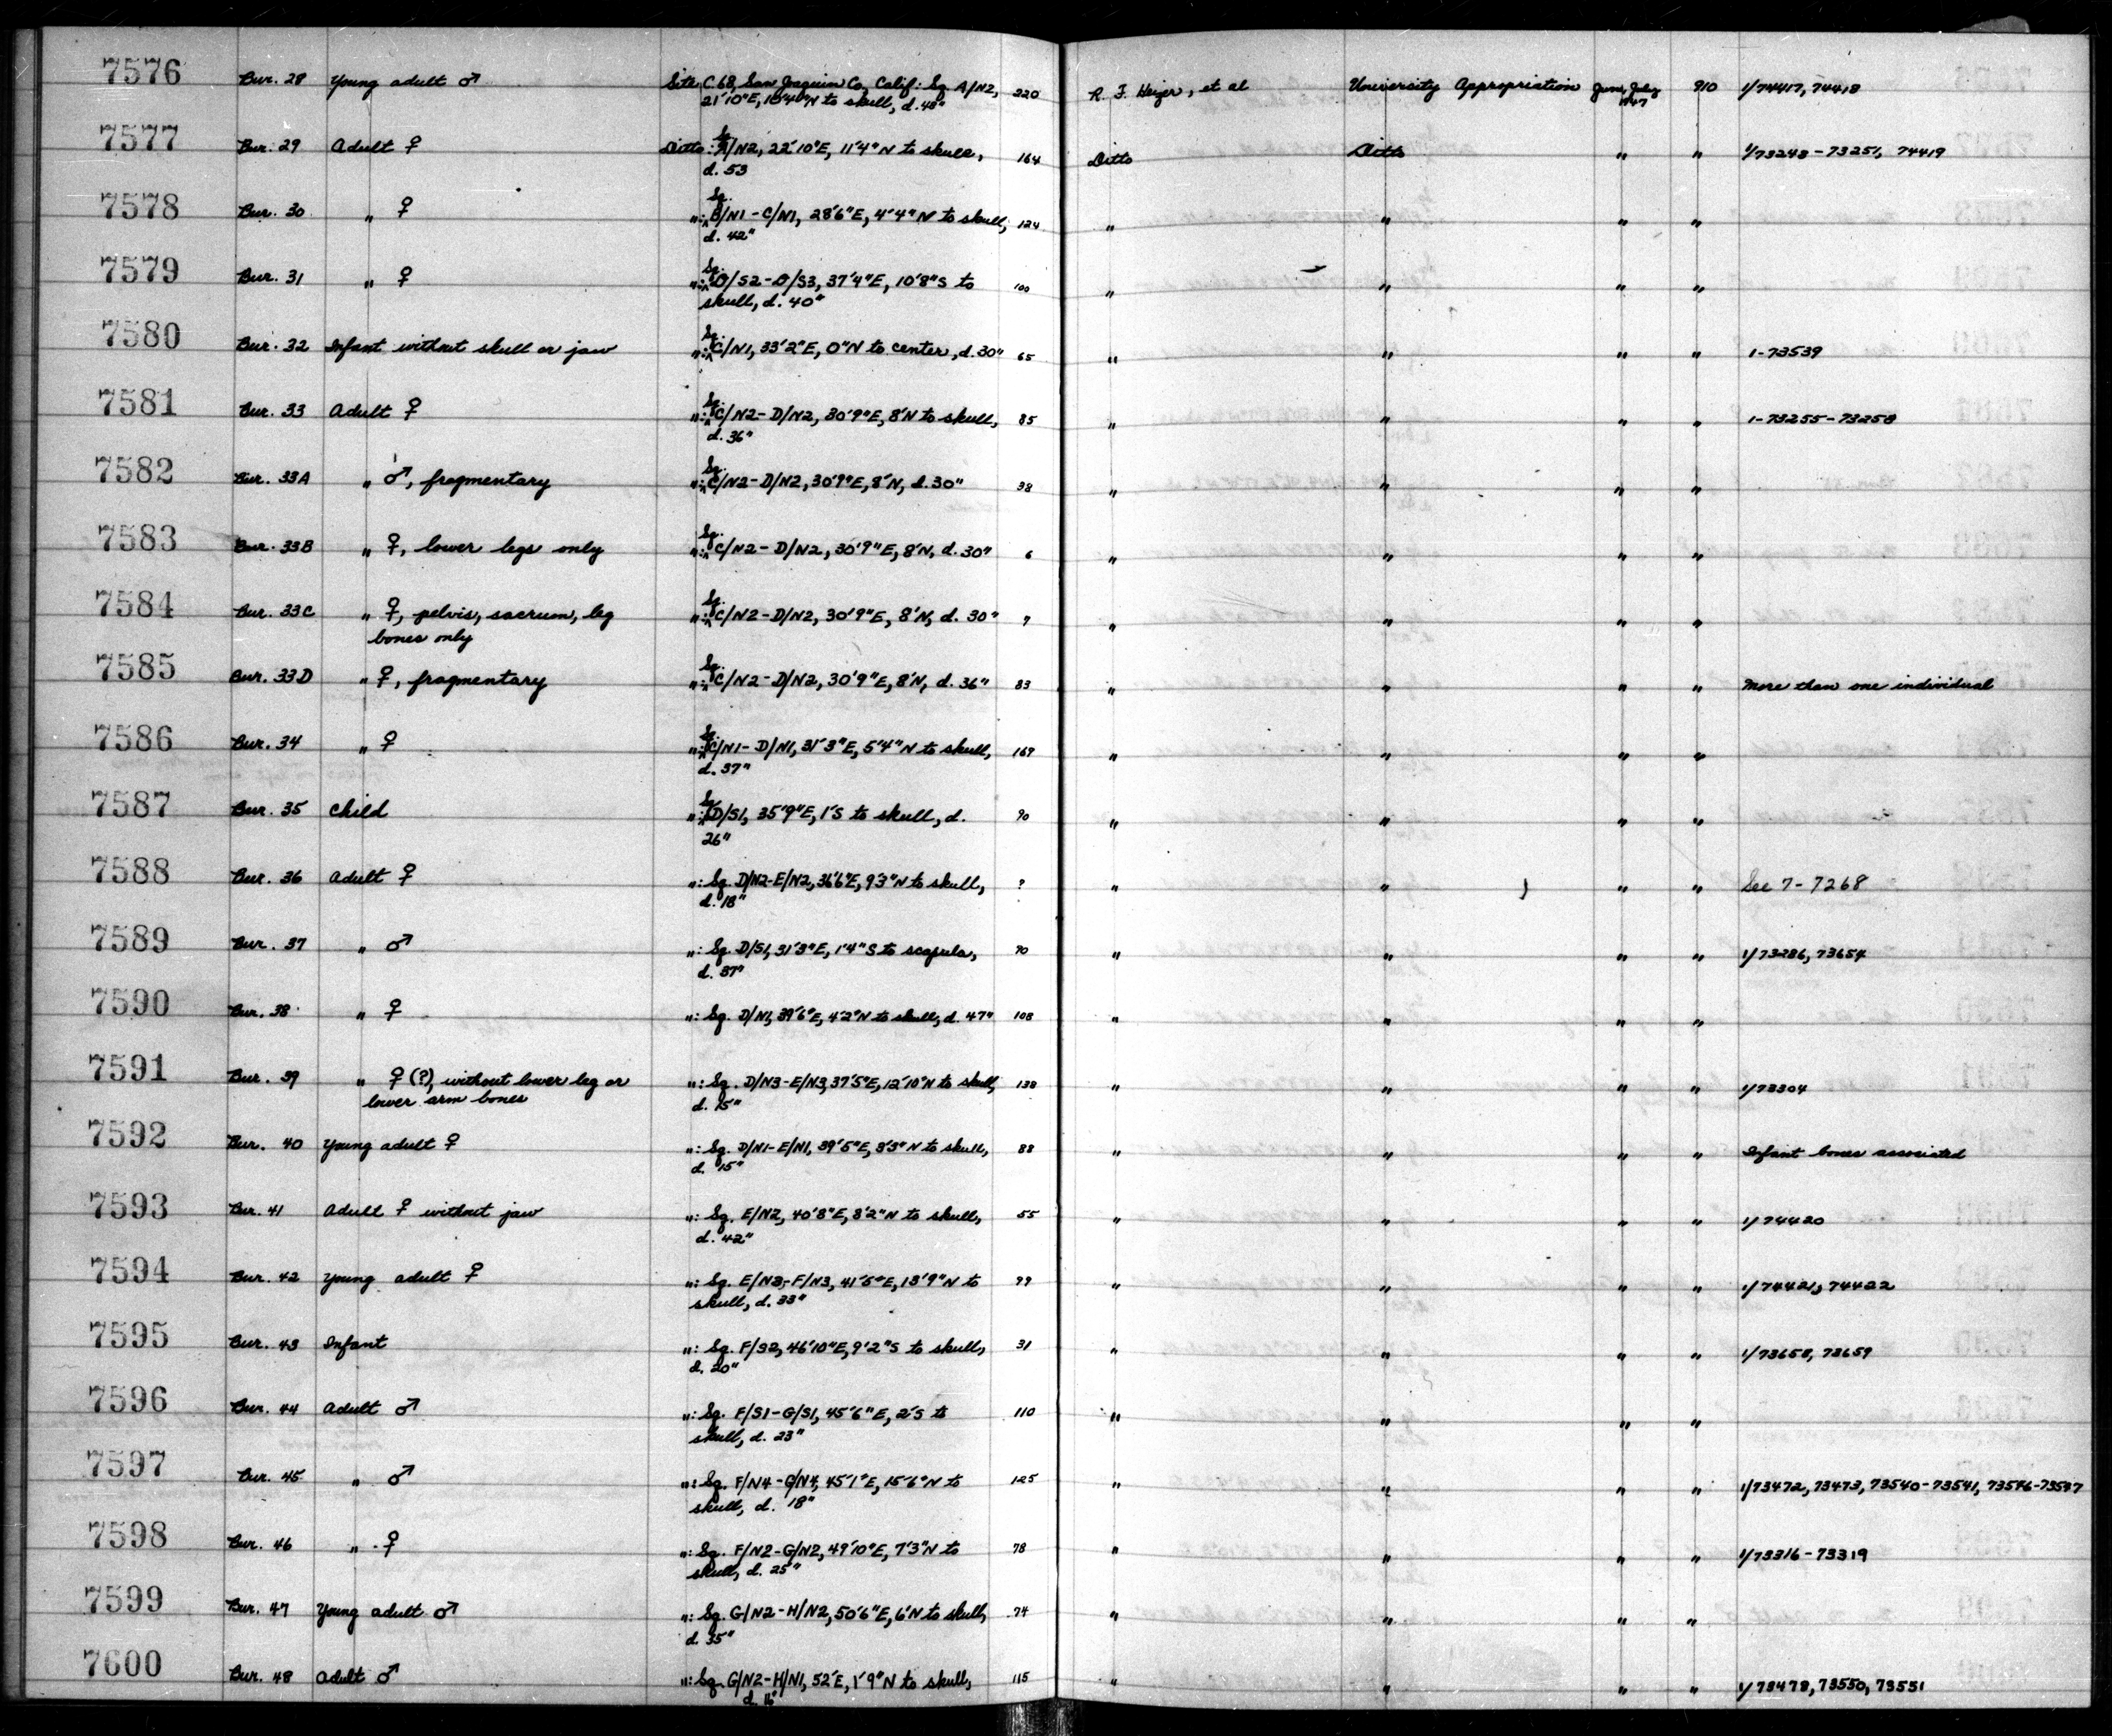 7576 Bur. 28 Young adult ♂ Site C.68, San Joaquin Co, Calif: Sq. A/N2, 220 R. F. Heizer, et al University Appropriation June, July 910 1/74417, 74418
21'10"E, 10'4"N to skull, d. 48" 1947
7577 Bur. 29 Adult ♀ Ditto: Sq. A/N2, 22'10"E, 11'4"N to skull, 164 Ditto Ditto " " 1/73248-73251, 74419
d. 53
7578 Bur. 30 " ♀ ": Sq. B/N1-C/N1, 28'6"E, 4'4"N to skull, 124 " " " "
d. 42"
7579 Bur. 31 " ♀ ": Sq. D/S2-D/S3, 37'4"E, 10'8"S to 100 " " " "
skull, d. 40"
7580 Bur. 32 Infant without skull or jaw ": Sq. C/N1, 33'2"E, 0"N to center, d. 30" 65 " " " " 1-73539
7581 Bur. 33 Adult ♀ ": Sq. C/N2-D/N2, 30'9"E, 8'N to skull, 85 " " " " 1-73255-73258
d. 36"
7582 Bur. 33A " ♂, fragmentary ": Sq. C/N2-D/N2, 30'9"E, 8'N, d. 30" 38 " " " "
7583 Bur. 33B " ♀, lower legs only ": Sq. C/N2-D/N2, 30'9"E, 8'N, d. 30" 6 " " " "
7584 Bur. 33C " ♀, pelvis, sacrum, leg ": Sq. C/N2-D/N2, 30'9"E, 8'N, d. 30" 9 " " " "
bones only
7585 Bur. 33D " ♀, fragmentary ": Sq. C/N2-D/N2, 30'9"E, 8'N, d. 36" 83 " " " " More than one individual
7586 Bur. 34 " ♀ ": Sq. C/N1-D/N1, 31'3"E, 5'4"N to skull, 169 " " " "
d. 37"
7587 Bur. 35 Child ": Sq. D/S1, 35'9"E, 1'S to skull, d. 90 " " " "
26"
7588 Bur. 36 Adult ♀ ": Sq. D/N2-E/N2, 36'6"E, 9'3"N to skull, ? " " " " See 7-7268
d. 18"
7589 Bur. 37 " ♂ ": Sq. D/S1, 31'3"E, 1'4"S to scapula, 90 " " " " 1/73286, 73654
d. 37"
7590 Bur. 38 " ♀ ": Sq. D/N1, 39'6"E, 4'2"N to skull, d. 47" 108 " " " "
7591 Bur. 39 " ♀ (?), without lower leg or ": Sq. D/N3-E/N3, 37'5"E, 12'10"N to skull, 138 " " " " 1/73304
lower arm bones d. 15"
7592 Bur. 40 Young adult ♀ ": Sq. D/N1-E/N1, 39'5"E, 3'3"N to skull, 88 " " " " Infant bones associated
d. 15"
7593 Bur. 41 Adult ♀ without jaw ": Sq. E/N2, 40'8"E, 8'2"N to skull, 55 " " " " 1/74420
d. 42"
7594 Bur. 42 Young adult ♀ ": Sq. E/N3-F/N3, 41'5"E, 13'9"N to 99 " " " " 1/74421, 74422
skull, d. 33"
7595 Bur. 43 Infant ": Sq. F/S2, 46'10"E, 9'2"S to skull, 31 " " " " 1/73658, 73659
d. 20"
7596 Bur. 44 Adult ♂ ": Sq. F/S1-G/S1, 45'6"E, 2'S to 110 " " " "
skull, d. 23"
7597 Bur. 45 " ♂ ": Sq. F/N4-G/N4, 45'1"E, 15'6"N to 125 " " " " 1/73472, 73473, 73540-73541, 73546-73547
skull, d. 18"
7598 Bur. 46 " ♀ ": Sq. F/N2-G/N2, 49'10"E, 7'3"N to 78 " " " " 1/73316-73319
skull, d. 25"
7599 Bur. 47 Young adult ♂ ": Sq. G/N2-H/N2, 50'6"E, 6'N to skull, 74 " " " "
d. 35"
7600 Bur. 48 Adult ♂ ": Sq. G/N2-H/N1, 52'E, 1'9"N to skull, 115 " " " " 1/73478, 73550, 73551
d. 16"